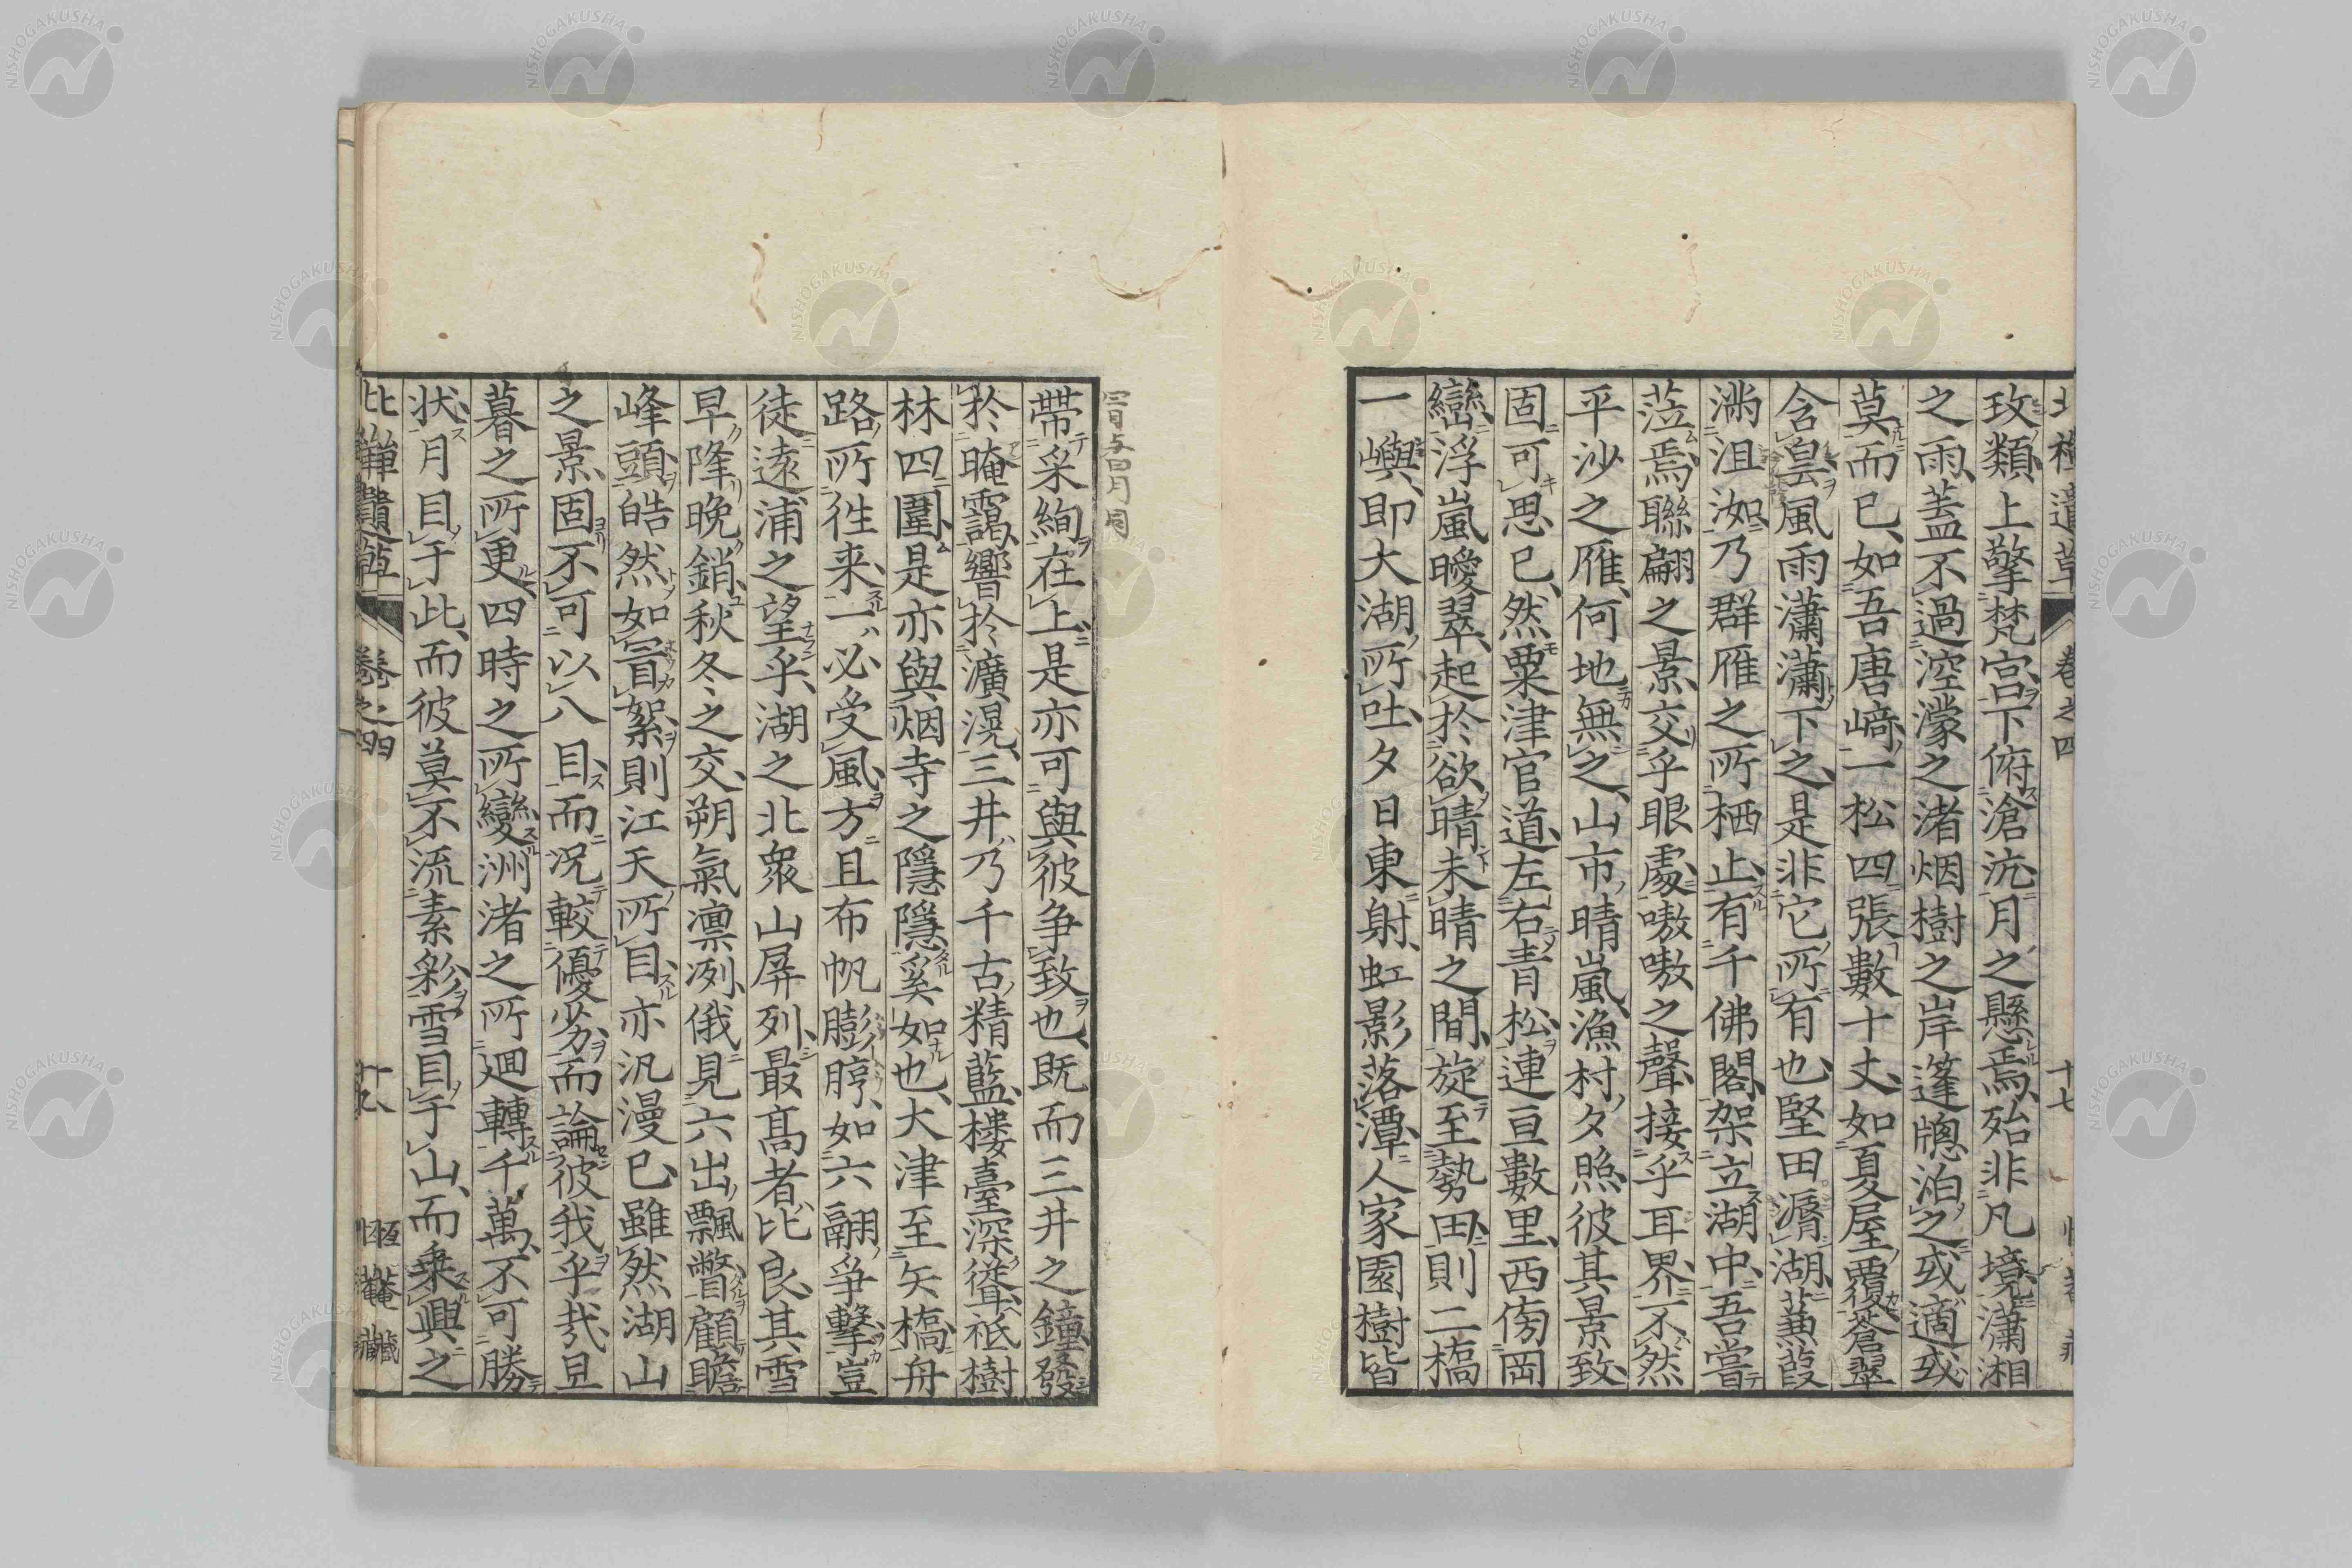 玫類上擎梵宮下俯滄沆月之懸焉殆非凡境瀟湘
之雨蓋不過涳濛之渚烟樹之岸篷牕泊之或適或
莫而已如吾唐﨑一松四張數十丈如夏屋覆蒼翠
含皇風雨瀟瀟下之是非它所有也堅田湣湖蒹葭
沮洳乃群雁之所栖止有千佛閣架立湖中吾嘗
蒞焉聯翩之景交乎眼處嗷嗷之聲接乎耳界不然
平沙之雁何地無之山市晴嵐漁村夕照彼其景致
固可思已然粟津官道左右青松連亘數里西傍岡
巒浮嵐曖翠起於欲晴未晴之間旋至勢田則二橋
一嶼即大湖所吐夕日東射虹影落潭人家園樹皆
帶采絢在上是亦可與彼争致也既而三井之鐘發
於晻靄響於瀇滉三井乃千古精藍樓臺深聳祇樹
林四圍是亦與烟寺之隱隱奚如也大津至矢橋舟
路所徃来一必受風方且布帆膨脝如六翮爭擊豈
徒遠浦之望乎湖之北衆山屏列最髙者比良其雪
早隆晚銷秋冬之交朔氣凛冽俄見六出飄瞥顧瞻
峰頭皓然如冐絮則江天所目亦汎漫已雖然湖山
之景固不可以八目而况較優劣而論彼我乎哉旦
暮之所更四時之所變洲渚之所廻轉千萬不可勝
状月目于此而彼莫不流素彩雪目于山而乗興之
卷之四